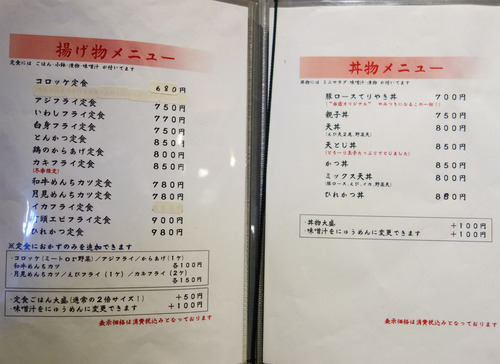 揚げ物メニュー
定食には ごはん・小鉢・漬物・味噌汁 が付いてます
コロッケ定食 680円
アジフライ定食 750円
いわしフライ定食 770円
白身フライ定食 750円
とんかつ定食 850円
鶏のからあげ定食 800円
カキフライ定食 850円
(冬季限定)
和牛めんちカツ定食 780円
月見めんちカツ定食 780円
イカフライ定食
有頭エビフライ定食 900円
ひれかつ定食 980円
※定食におかずのみを追加できます
・コロッケ(ミートor野菜)/アジフライ/からあげ(1ケ)
和牛めんちカツ 各100円
・月見めんちカツ/えびフライ(1ケ)/カキフライ(2ケ)
各150円
・定食ごはん大盛(通常の2倍サイズ!) +50円
・味噌汁をにゅうめんに変更できます +100円
表示価格は消費税込みとなっております
丼物メニュー
丼物には ミニサラダ・漬物・味噌汁 が付いてます
豚ロースてりやき丼 700円
("当店オリジナル" やみつきになるこの一杯!)
親子丼 750円
天丼 800円
(えび天2尾、野菜天)
天とじ丼 850円
(とろ~り玉子たっぷりでとじました)
かつ丼 850円
ミックス天丼 880円
(豚ロース、えび、イカ、野菜天)
ひれかつ丼 880円
・丼物大盛 +100円
・味噌汁をにゅうめんに変更できます +100円
表示価格は消費税込みとなっております